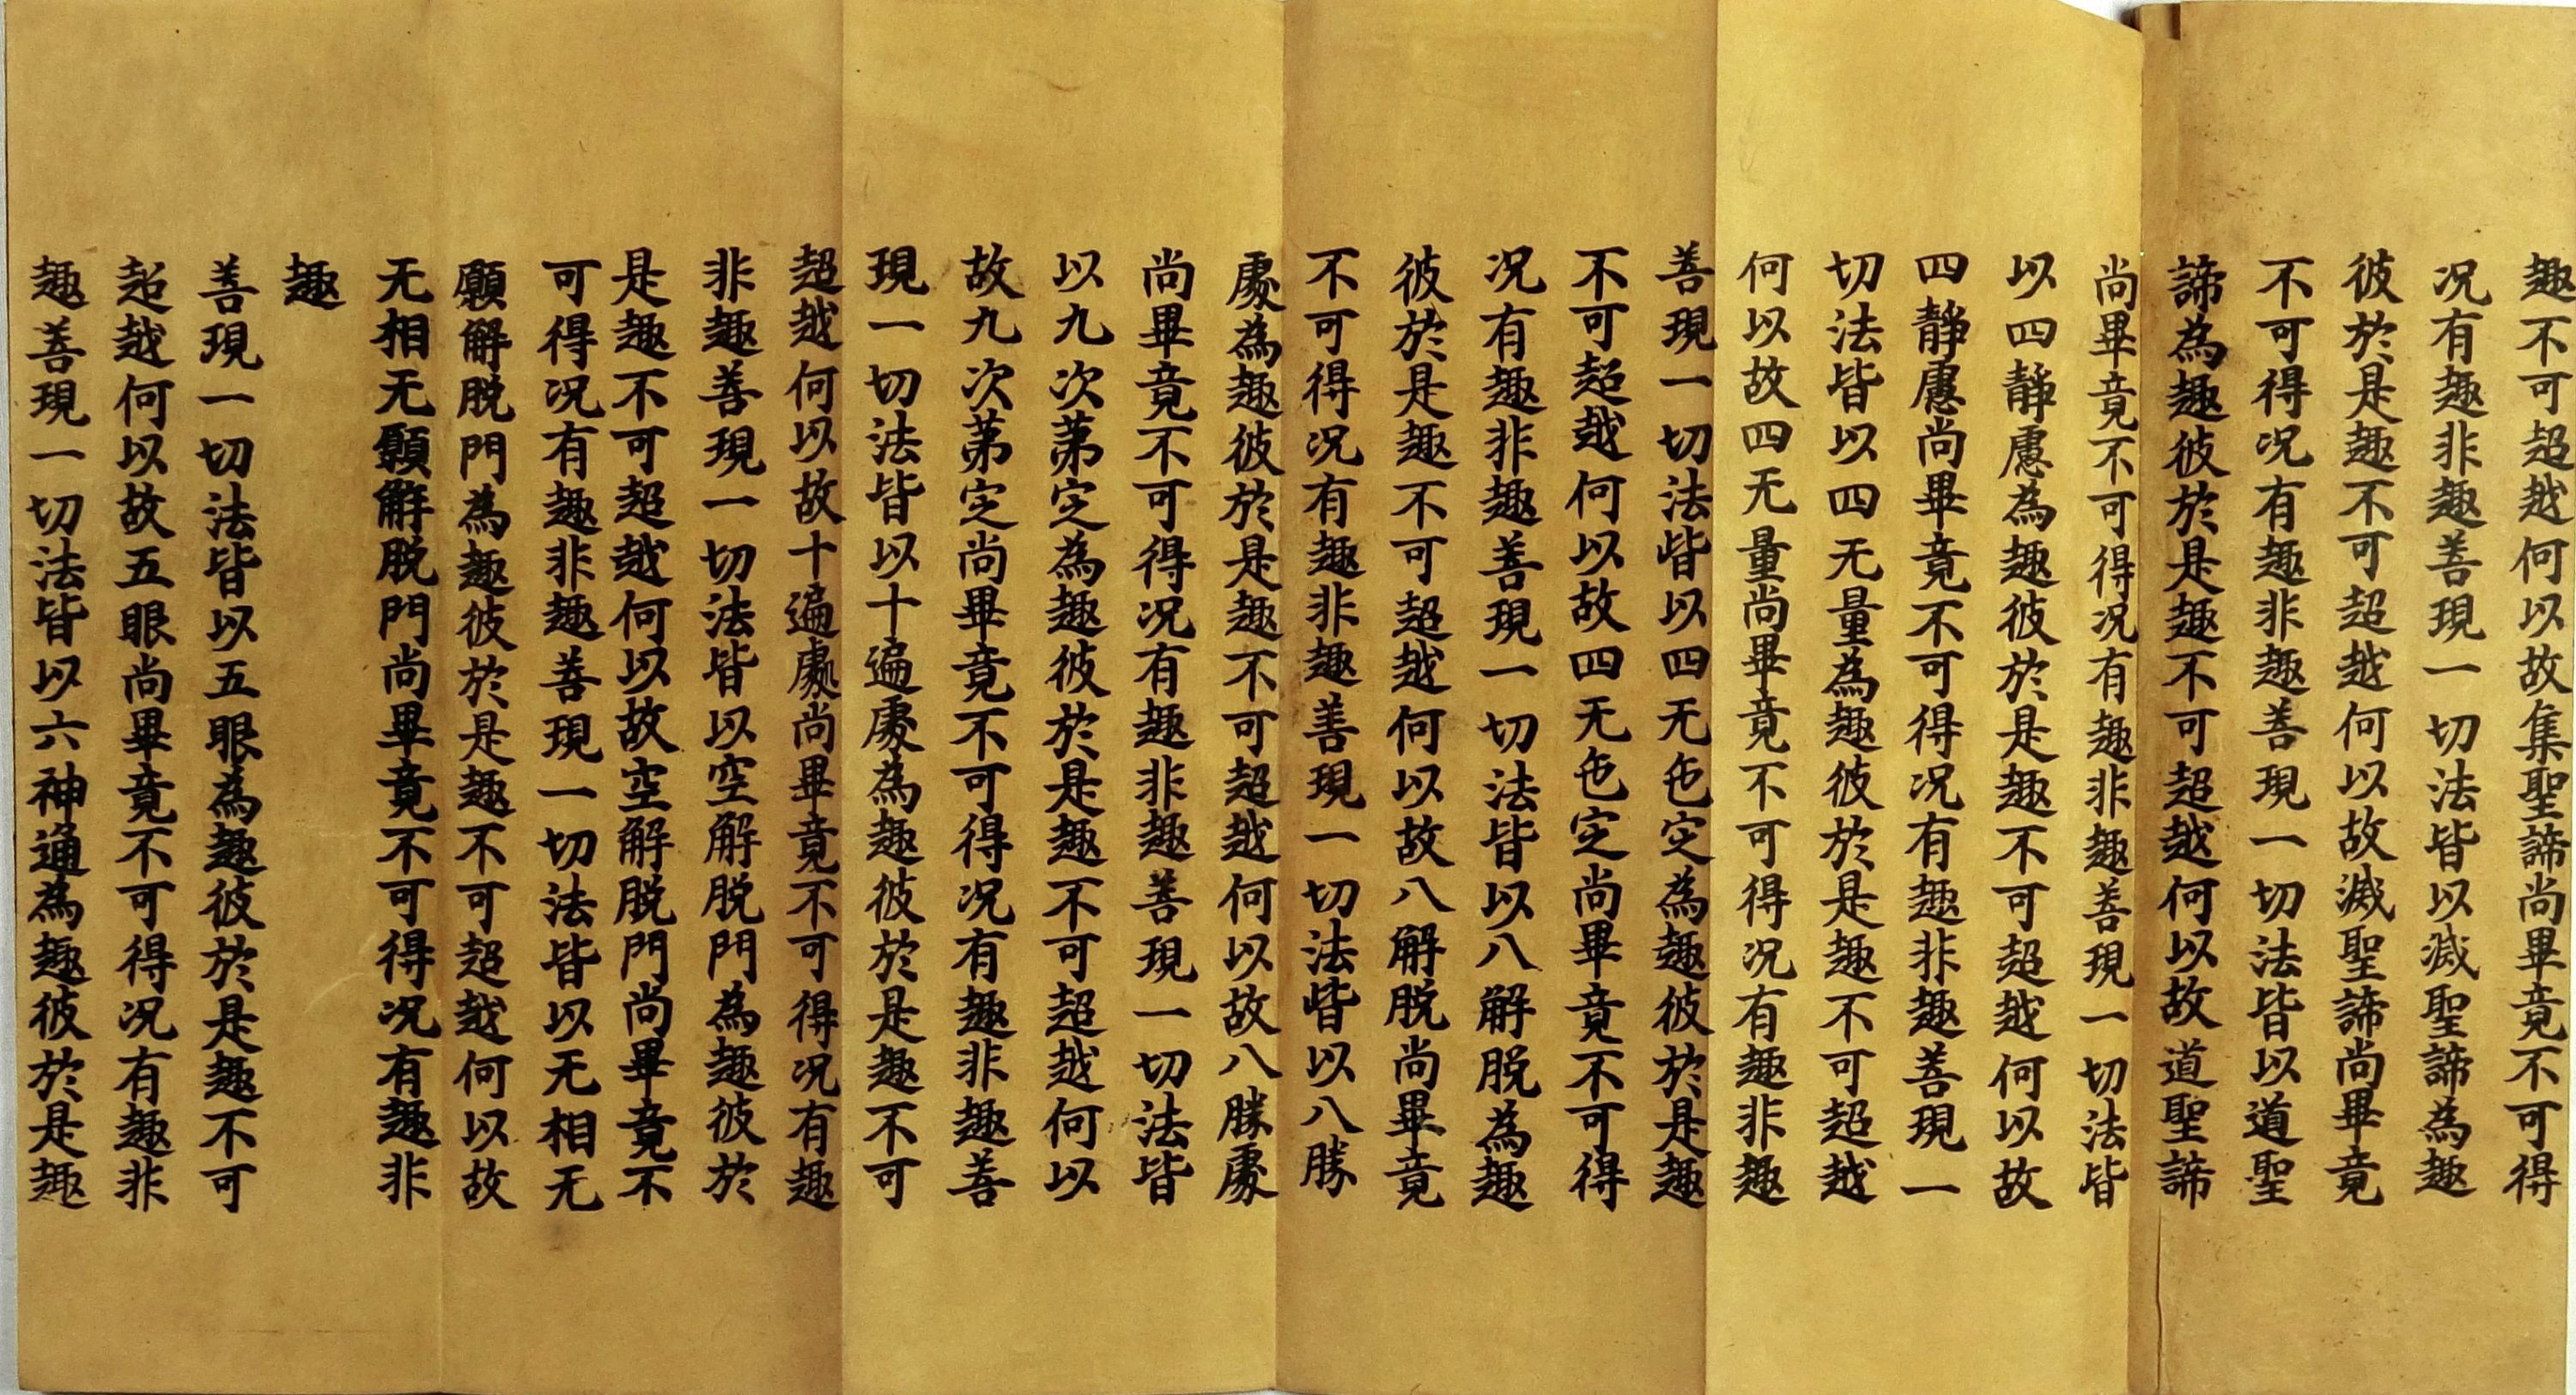 趣不可超越何以故集聖諦尚畢竟不可得
况有趣非趣善現一切法皆以滅聖諦為趣
彼於是趣不可超越何以故滅聖諦尚畢竟
不可得况有趣非趣善現一切法皆以道聖
諦為趣彼於是趣不可超越何以故道聖諦
尚畢竟不可得况有趣非趣善現一切法皆
以四靜慮為趣彼於是趣不可超越何以故
四靜慮尚畢竟不可得况有趣非趣善現一
切法皆以四无量為趣彼於是趣不可超越
何以故四无量尚畢竟不可得况有趣非趣
善現一切法皆以四无色定為趣彼於是趣
不可超越何以故四无色定尚畢竟不可得
况有趣非趣善現一切法皆以八解脱為趣
彼於是趣不可超越何以故八解脱尚畢竟
不可得况有趣非趣善現一切法皆以八勝
處為趣彼於是趣不可超越何以故八勝處
尚畢竟不可得况有趣非趣善現一切法皆
以九次第定為趣彼於是趣不可超越何以
故九次第定尚畢竟不可得况有趣非趣善
現一切法皆以十遍處為趣彼於是趣不可
超越何以故十遍處尚畢竟不可得况有趣
非趣善現一切法皆以空解脱門為趣彼於
是趣不可超越何以故空解脱門尚畢竟不
可得况有趣非趣善現一切法皆以无相无
願解脱門為趣彼於是趣不可超越何以故
无相无願解脱門尚畢竟不可得况有趣非
趣
善現一切法皆以五眼為趣彼於是趣不可
超越何以故五眼尚畢竟不可得况有趣非
趣善現一切法皆以六神通為趣彼於是趣